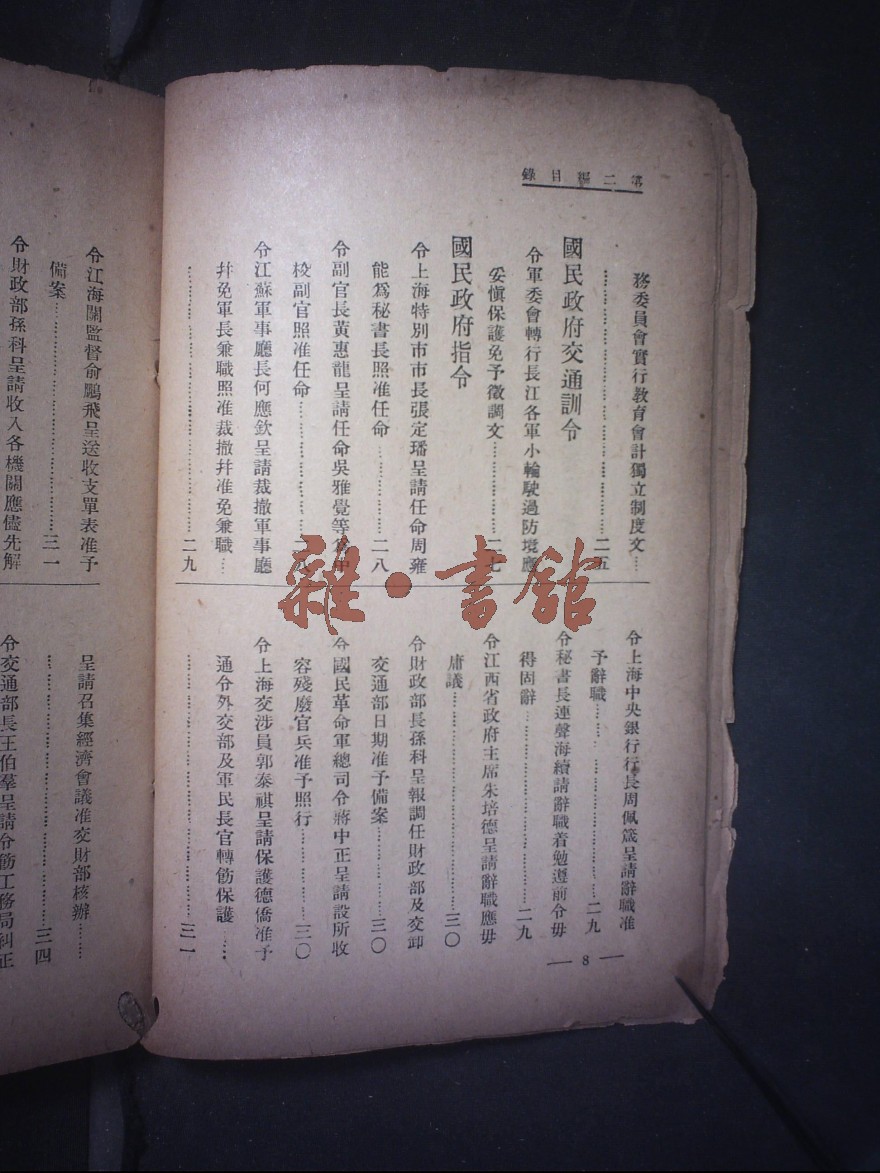 第二編目錄
務委員會實行教育會計獨立制度文……
……二五
國民政府交通訓令
令軍委會轉行長江各軍小輪駛過防境應
妥愼保護免予徵調文……二七
國民政府指令
令上海特別市市長張定璠呈請任命周雍
能爲秘書長照准任命……二八
令副官長黃惠龍呈請任命吳雅覺等爲中
校副官照准任命……二八
令江蘇軍事廳長何應欽呈請裁撤軍事廳
幷免軍長兼職照准裁撤幷准免兼職……
……二九
令上海中央銀行行長周佩箴呈請辭職准
予辭職……二九
令秘書長連聲海續請辭職着勉遵前令毋
得固辭……二九
令江西省政府主席朱培德呈請辭職應毋
庸議……三〇
令財政部長孫科呈報調任財政部及交卸
交通部日期准予備案……三〇
令國民革命軍總司令蔣中正呈請設所收
容殘廢官兵准予照行……三〇
令上海交涉員郭泰祺呈請保護德僑准予
通令外交部及軍民長官轉飭保護……
……三一
— 8 —
令江海關監督俞鵬飛呈送收支單表准予
備案……三一
令財政部孫科呈請收入各機關應儘先解
呈請召集經濟會議准交財部核辦……
……三四
令交通部長王伯羣呈請令飭工務局糾正
雜·書館